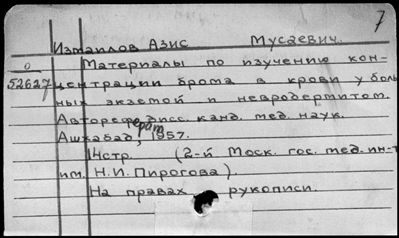 7
Измаилов Азис Мусаевич.
О Материалы по изучению кон-
52627 центрации брома в крови у боль-
ных экземой и невродермитом.
Автореферат дисс. канд. мед. наук.
Ашхабад, 1957.
14стр. (2-й Моск. гос. мед. ин-т
им. Н.И. Пирогова).
На правах рукописи.